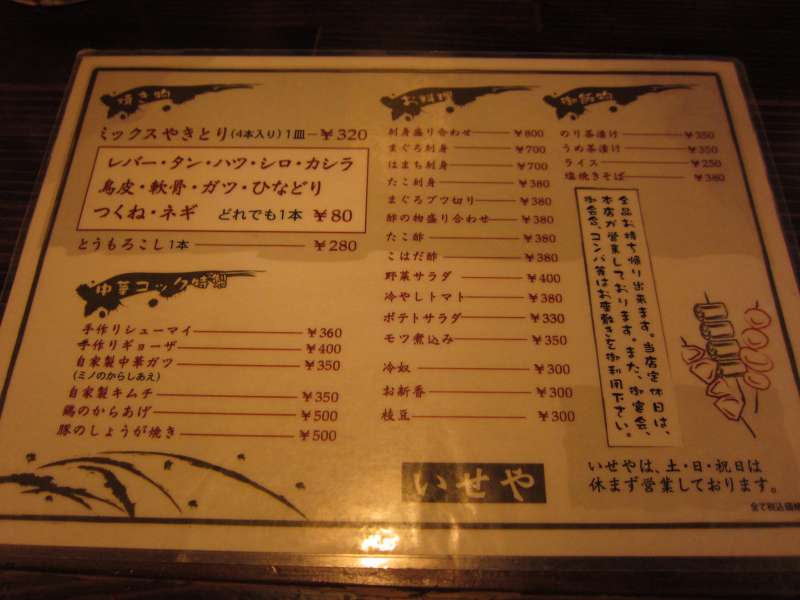 焼き物
ミックスやきとり(4本入り)1皿 ¥320
レバー・タン・ハツ・シロ・カシラ
鳥皮・軟骨・ガツ・ひなどり
つくね・ネギ どれでも1本 ¥80
とうもろこし1本 ¥280
中華コック特製
手作りシューマイ ¥360
手作りギョーザ ¥400
自家製中華ガツ ¥350
(ミノのからしあえ)
自家製キムチ ¥350
鶏のからあげ ¥500
豚のしょうが焼き ¥500
お料理
刺身盛り合わせ ¥800
まぐろ刺身 ¥700
はまち刺身 ¥700
たこ刺身 ¥380
まぐろブツ切り ¥380
酢の物盛り合わせ ¥380
たこ酢 ¥380
こはだ酢 ¥380
野菜サラダ ¥400
冷やしトマト ¥380
ポテトサラダ ¥330
モツ煮込み ¥350
冷奴 ¥300
お新香 ¥300
枝豆 ¥300
御飯物
のり茶漬け ¥350
うめ茶漬け ¥350
ライス ¥250
塩焼きそば ¥380
全品お持ち帰り出来ます。当店定休日は、
本店が営業しております。また、御宴会、
御会合、コンパ等はお座敷を御利用下さい。
いせや
いせやは、土・日・祝日は
休まず営業しております。
全て税込価格